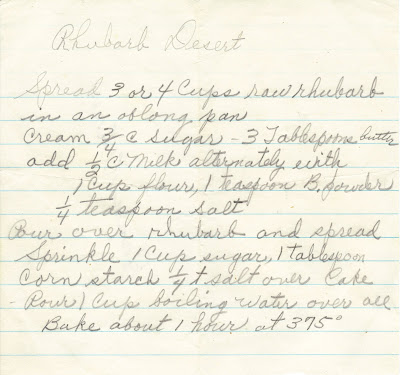 Rhubarb Desert
Spread 3 or 4 Cups raw rhubarb
in an oblong pan
Cream 3/4 c sugar - 3 Tablespoons butter
add 1/2 c Milk alternately with
1 Cup flour, 1 teaspoon B. powder
1/4 teaspoon salt
Pour over rhubarb and spread
Sprinkle 1 Cup sugar, 1 tablespoon
Corn starch 1/4 t salt over Cake
- Pour 1 Cup boiling water over all
Bake about 1 hour at 375°